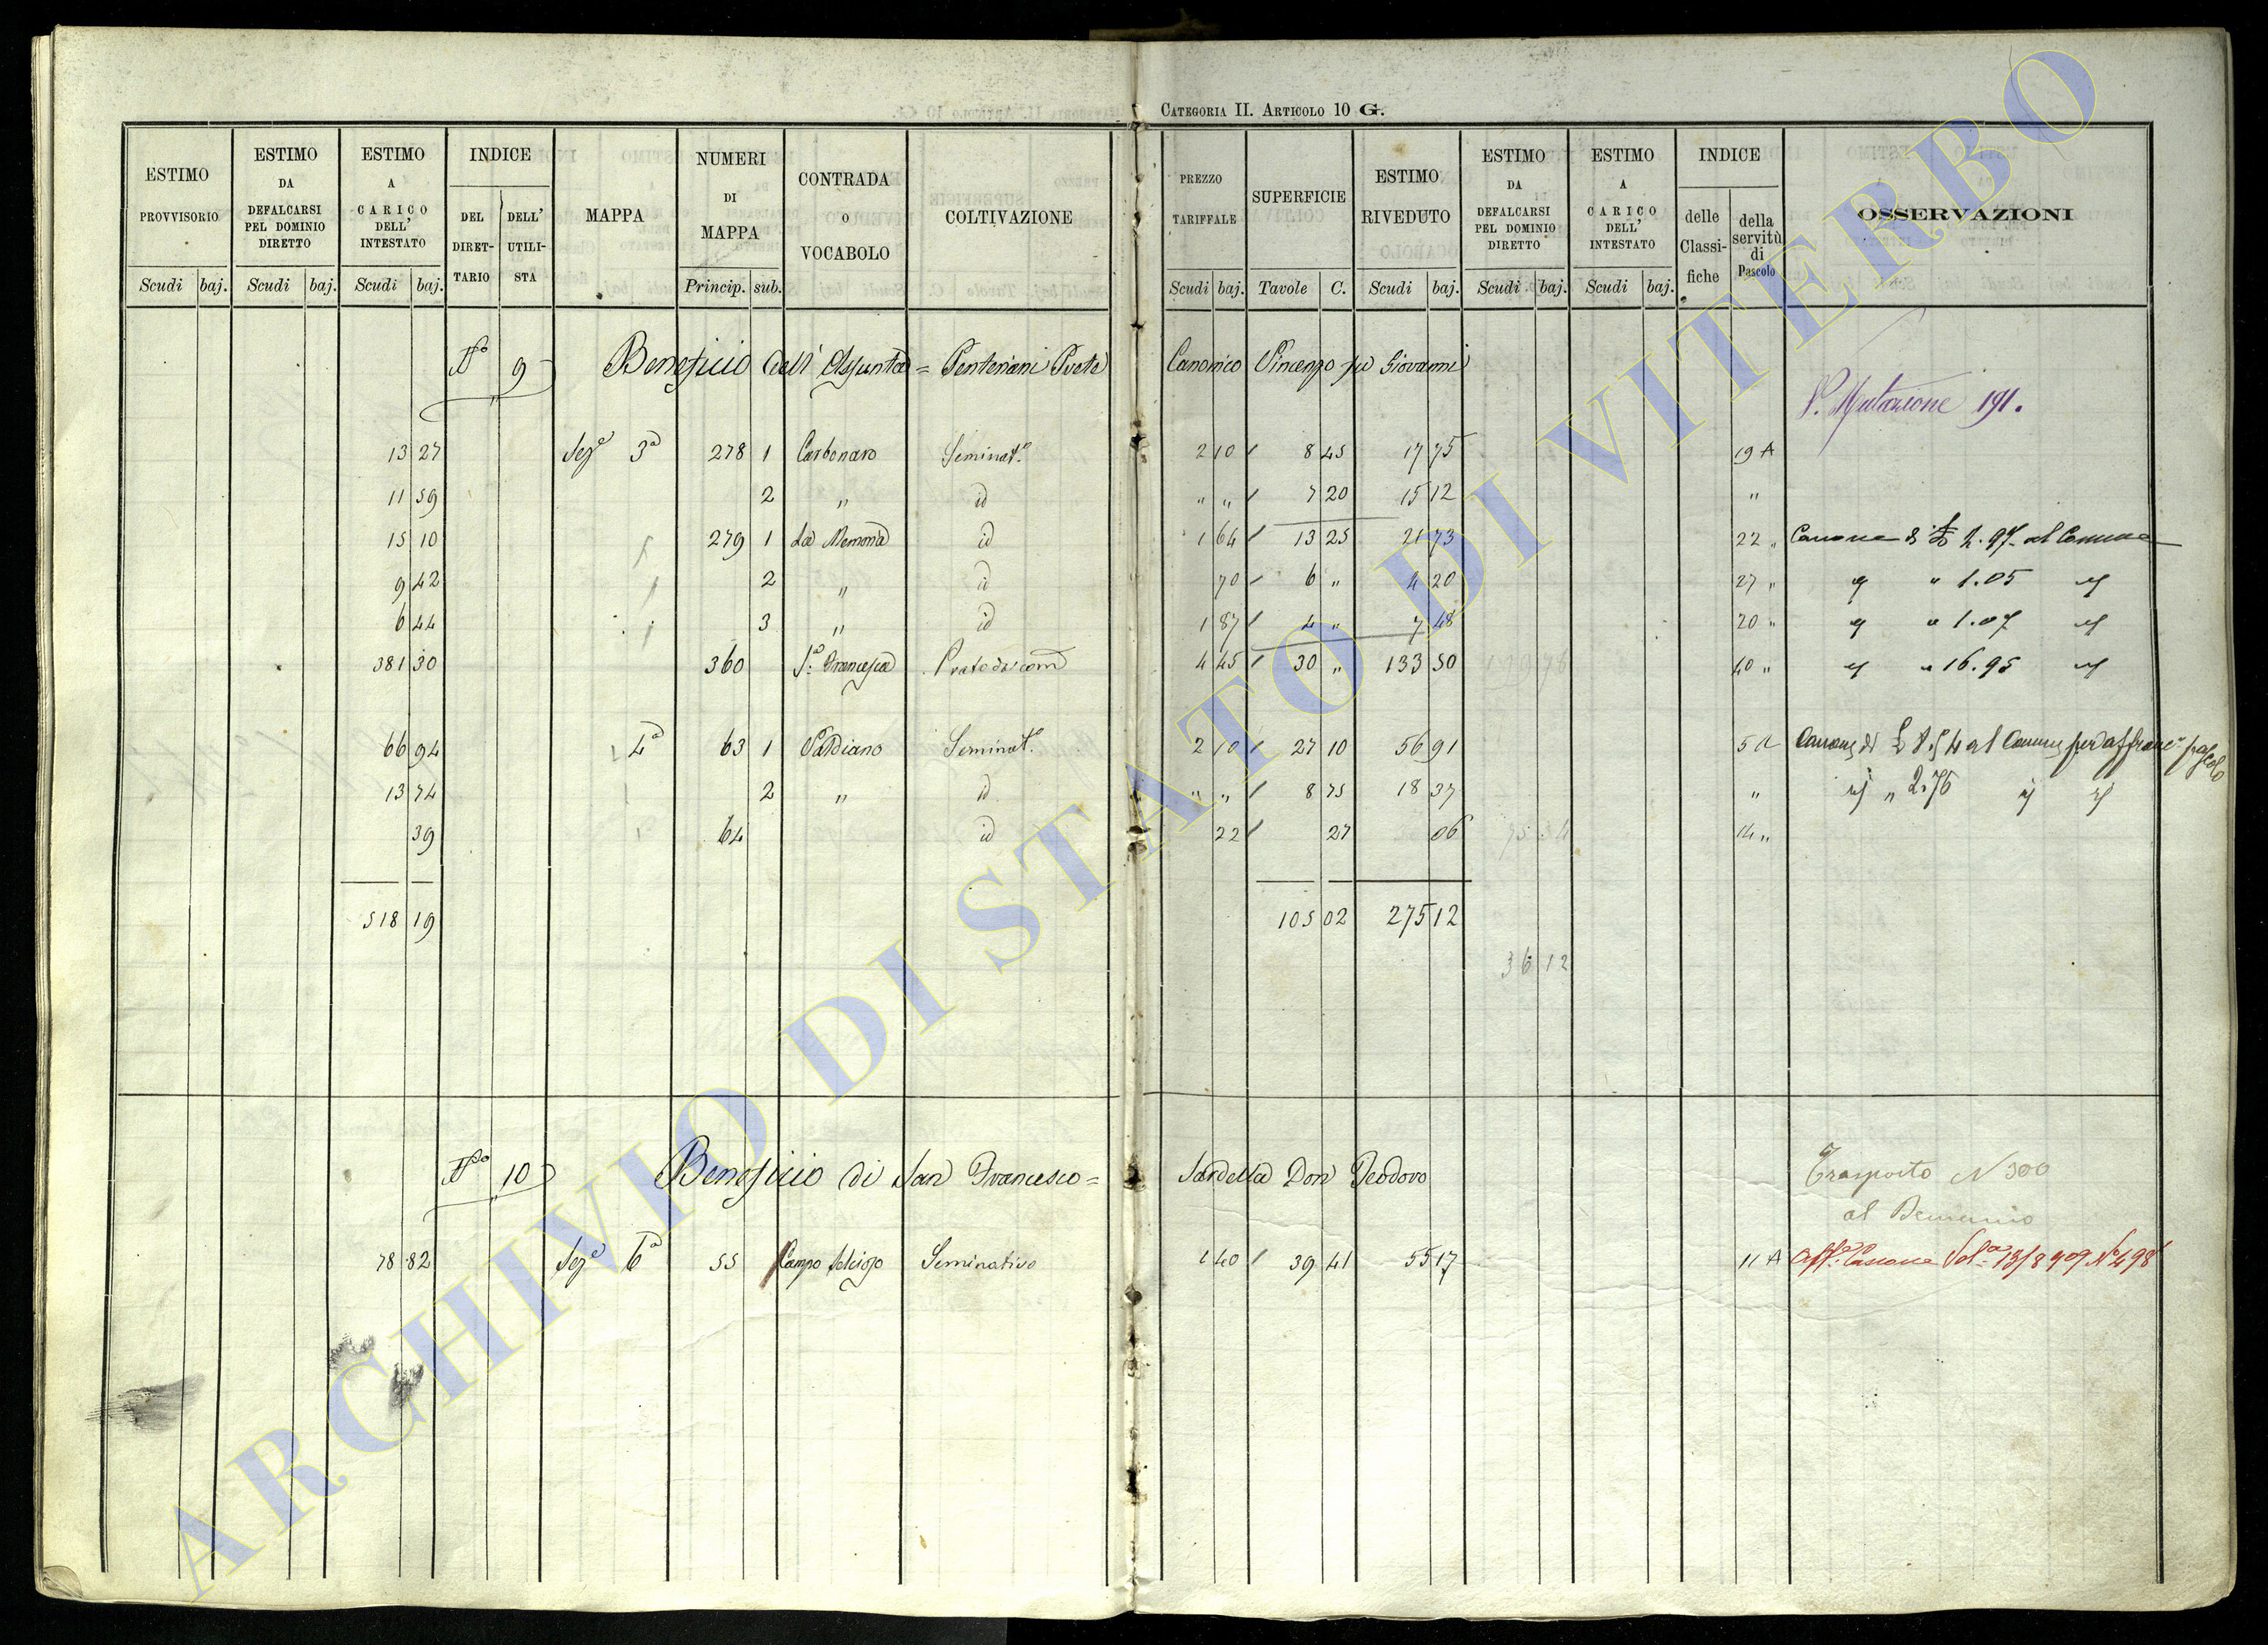 CATEGORIA II. ARTICOLO 10 G.
ESTIMO PROVVISORIO Scudi baj.
ESTIMO DA DEFALCARSI PEL DOMINIO DIRETTO Scudi baj.
ESTIMO A CARICO DELL' INTESTATO Scudi baj.
INDICE DEL DIRETTARIO DELL' UTILISTA
MAPPA
NUMERI DI MAPPA Princip. sub.
CONTRADA O VOCABOLO
COLTIVAZIONE
PREZZO TARIFFALE Scudi baj.
SUPERFICIE Tavole C.
ESTIMO RIVEDUTO Scudi baj.
ESTIMO DA DEFALCARSI PEL DOMINIO DIRETTO Scudi baj.
ESTIMO A CARICO DELL' INTESTATO Scudi baj.
INDICE delle Classifiche della servitù di Pascolo
OSSERVAZIONI
No 9 Beneficio dell' Assunta = Penteriani Prete Canonico Vincenzo fu Giovanni
V. Mutazione 191.
13 27 Seze 3a 278 1 Carbonaro Seminato 2 10 8 45 17 75 19 A
11 59 2 " id " " 7 20 15 12 "
15 10 279 1 La Memoria id 1 64 13 25 21 73 22 " Canone di £ 2.97 al Comune
9 42 2 " id 70 6 " 4 20 27 " " 1.05
6 44 3 " id 1 87 4 " 7 48 20 " " 1.07
381 30 360 Sa Francesca Prato 4 45 30 " 133 50 40 " " 16.95
66 94 4a 63 1 Seminato 2 10 27 10 56 91 5 Canone di £ al Comune per affranc. pascolo
13 74 2 " id " " 8 75 18 37 " " 2.76
39 64 " id 22 27 06 14 "
518 19 105 02 275 12
36 12
No 10 Beneficio di San Francesco = Sardella Don Teodoro
Trasporto N 300
al Demanio
78 82 Seze 6a 55 Campo Selcioso Seminativo 1 40 39 41 55 17 11 A Affe Canone Vola 13/8 909 No 498
ARCHIVIO DI STATO DI VITERBO